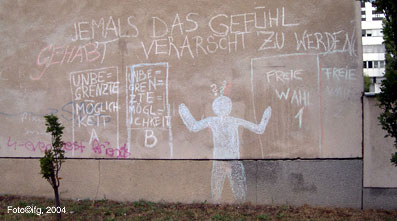 JEMALS DAS GEFÜHL
GEHABT VERARSCHT ZU WERDEN
UNBE-
GRENZTE
MÖGLICH
KEIT
A
UNBE-
GRENZ
TE
MÖGL-
ICHKEIT
B
FREIE
WAHL
1
FREIE
Foto©ifg, 2004